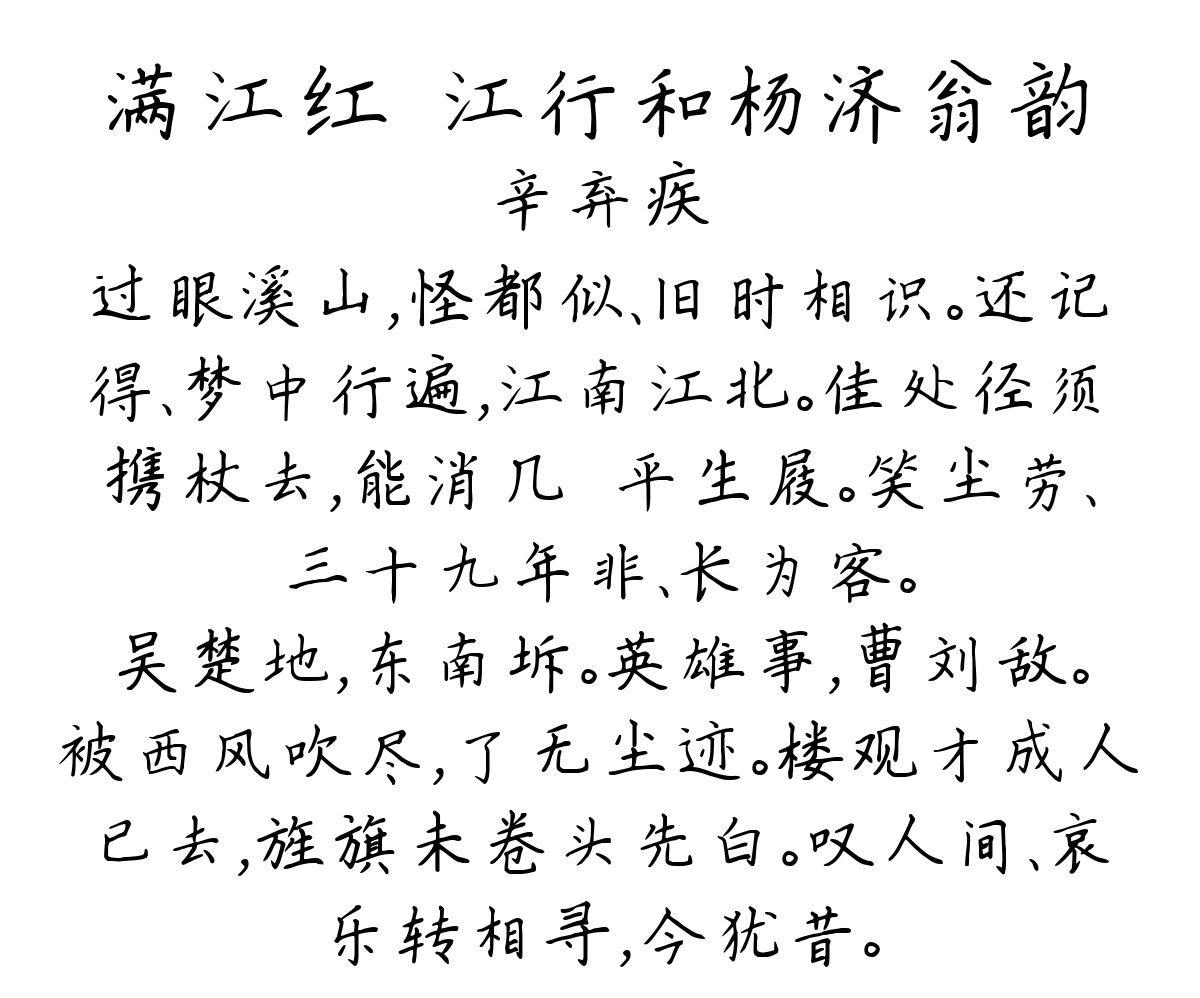 满江红 江行和杨济翁韵
辛弃疾
过眼溪山,怪都似、旧时相识。还记
得、梦中行遍,江南江北。佳处径须
携杖去,能消几 平生屐。笑尘劳、
三十九年非、长为客。
吴楚地,东南坼。英雄事,曹刘敌。
被西风吹尽,了无尘迹。楼观才成人
已去,旌旗未卷头先白。叹人间、哀
乐转相寻,今犹昔。